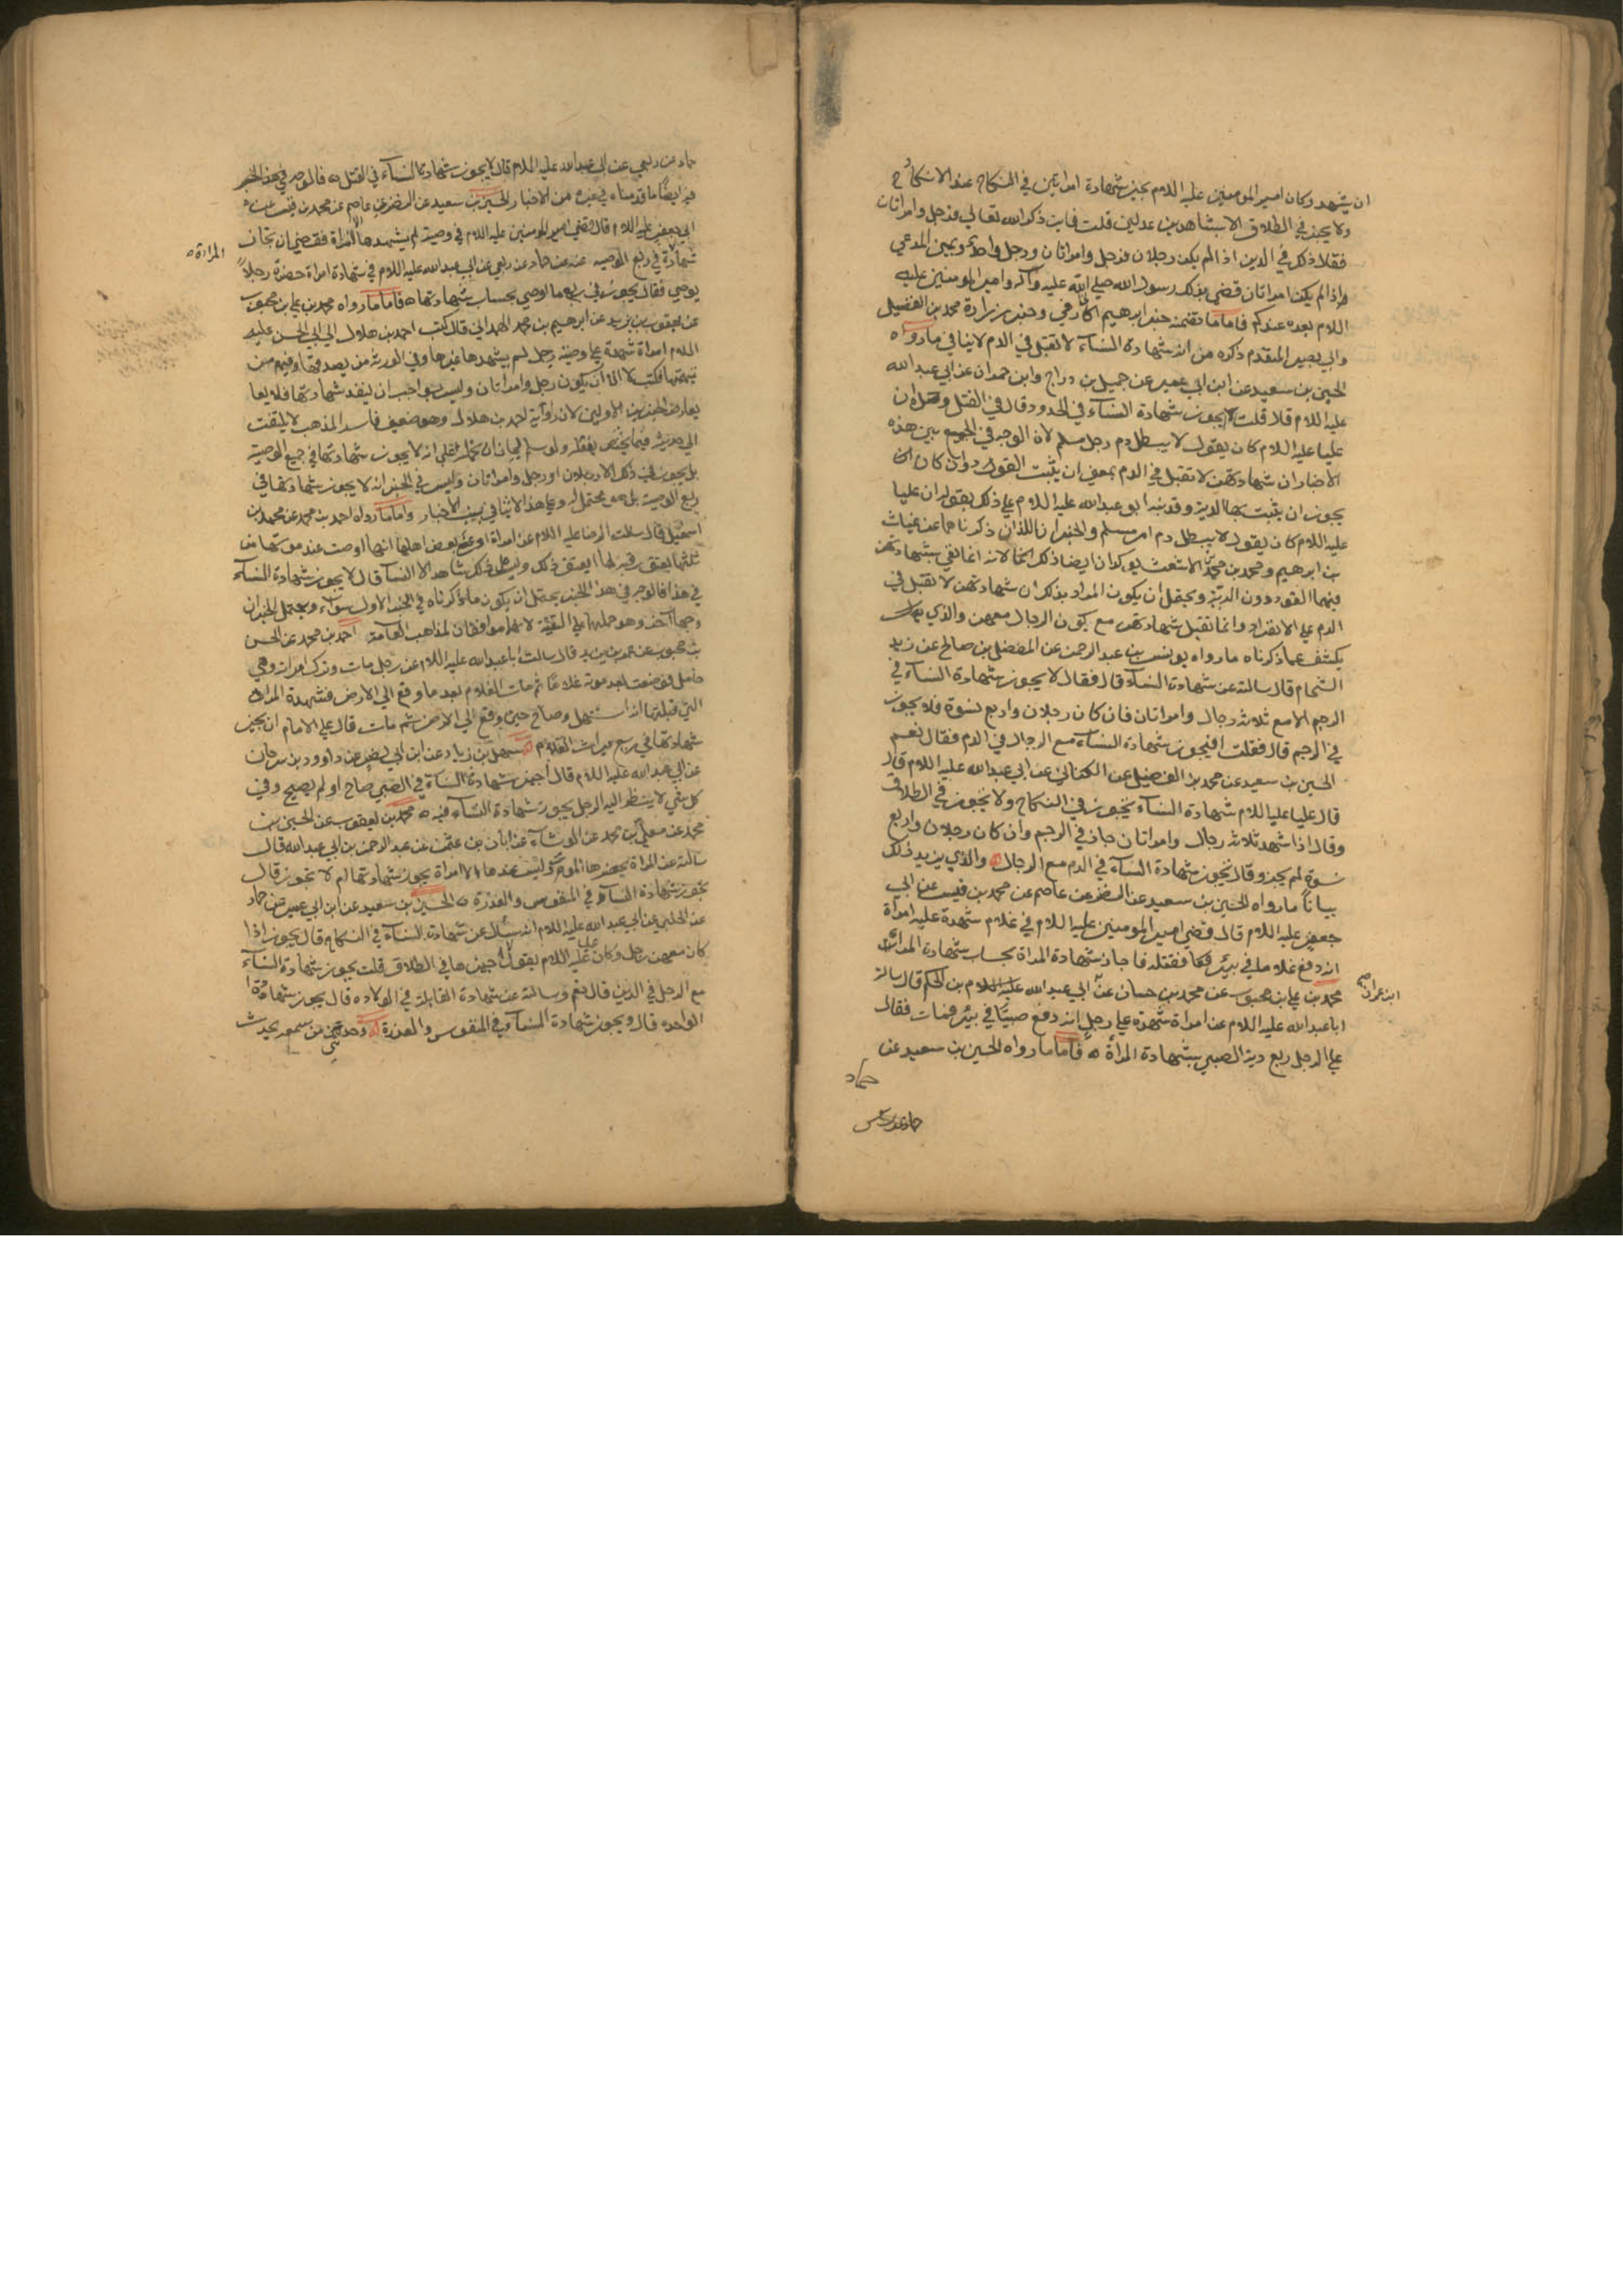 ان يشهد وكان امير المومنين عليه السلام يجيز شهادة امراتين في النكاح عند الانكار
ولا يجيز في الطلاق الا بشاهدين عدلين قلت فاين ذكر الله تعالي فرجل وامراتان
فقال ذلك في الدين اذا لم يكن رجلان فرجل وامراتان ورجل واحد ويمين المدعي
واذا لم يكن امراتان قضي بذلك رسول الله صلي الله عليه وآله وامير المومنين عليه
السلام بعده عندكم فاما ما تضمنه خبر ابرهيم الخارفي وخبر زرارة محمد بن الفضيل
وابي بصير المتقدم ذكره من ان شهادة النساء لا تقبل في الدم لا ينافي ما رواه
الحسين بن سعيد عن ابن ابي عمير عن جميل بن دراج وابن حمران عن ابي عبد الله
عليه السلام قلا قلت يجوز شهادة النساء في الحدود قال في القتل وحده ان
عليا عليه السلام كان يقول لا يبطل دم رجل مسلم لان الوجه في الجمع بين هذه
الاخبار ان شهادتهن لا تقبل في الدم بمعني ان يثبت القود وان كان
يجوز ان يثبت بها الدية وقد نبه ابو عبد الله عليه السلام علي ذلك بقوله ان عليا
عليه السلام كان يقول لا يبطل دم امرء مسلم والخبران اللذان ذكرناهما عن غياث
بن ابرهيم ومحمد بن محمد بن الاشعث يوكدان ايضا ذلك لانه انما نفي بشهادتهن
فيهما القود دون الدية ويحتمل ان يكون المراد بذلك ان شهادتهن لا تقبل في
الدم علي الانفراد وانما تقبل شهادتهن مع كون الرجال معهن والذي
يكشف عما ذكرناه ما رواه يونس بن عبد الرحمن عن المفضل بن صالح عن زيد
الشحام قال سالته عن شهادة النساء قال فقال لا يجوز شهادة النساء في
الرجم الا مع ثلاثة رجال وامراتان فان كان رجلان واربع نسوة فلا يجوز
في الرجم قال فقلت افيجوز شهادة النساء مع الرجال في الدم فقال نعم
الحسين بن سعيد عن محمد بن الفضيل عن الكناني عن ابي عبد الله عليه السلام قال
قال علي عليه السلام شهادة النساء يجوز في النكاح ولا تجوز في الطلاق
وقال اذا شهد ثلاثة رجال وامراتان جاز في الرجم وان كان رجلان واربع
نسوة لم يجز وقال تجوز شهادة النساء في الدم مع الرجال والذي يزيد ذلك
بيانا ما رواه الحسين بن سعيد عن النضر عن عاصم عن محمد بن قيس عن ابي
جعفر عليه السلام قال قضي امير المومنين عليه السلام في غلام شهدة عليه امراة
انه دفع غلاما في بير فقتله فاجاز شهادة المراة بحساب شهادة المراة
محمد بن علي بن محبوب عن محمد بن حسان عن ابي عبد الله بن الحكم قال سالت
ابا عبد الله عليه السلام عن امراة شهدة علي رجل انه دفع صبيا في بير فمات فقال
علي الرجل ربع دية الصبي بشهادة المراة فاما ما رواه الحسين بن سعيد عن
حماد
حماد عن ربعي عن ابي عبد الله عليه السلام قال لا يجوز شهادة النساء في القتل فالوجه في هذا الخبر
فيه ايضا ما قدمناه في غيره من الاخبار الحسين بن سعيد عن النضر عن عاصم عن محمد بن قيس عن
ابي جعفر عليه السلام قال قضي امير المومنين عليه السلام في وصية لم يشهدها الا امراة فقضي ان تجاز
المراة
شهادة في ربع الوصيه عنه عن حماد عن ربعي عن ابي عبد الله عليه السلام في شهادة امراة حضرة رجلا
يوصي فقال يجوز في ربع ما اوصي بحساب شهادتها فاما ما رواه محمد بن علي بن محبوب
عن يعقوب بن يزيد عن ابرهيم بن محمد الهمداني قال كتب احمد بن هلال الي ابي الحسن عليه
السلام امراة شهدة علي وصية رجل لم يشهدها غيرها وفي الورثة من يصدقها وفيهم من
يتهمها فكتب لا الا ان يكون رجل وامراتان وليس بواجب ان ينفد شهادتها فلا
يعارض الخبرين الاولين لان راوية احمد بن هلال وهو ضعيف فاسد المذهب لا يلتفت
الي حديثه فيما يختص بنقله ولو سلم لجاز ان نحمله علي انه لا يجوز شهادتها في جميع الوصية
بل يجوز في ذلك الا رجلان او رجل وامراتان وليس في الخبر انه لا يجوز شهادتها في
ربع الوصية بل هو محتمل له وعلي هذا لا تنافي بين الاخبار واما ما رواه احمد بن محمد عن محمد بن
اسمعيل قال سالت الرضا عليه السلام عن امراة ادعي بعض اهلها انها اوصت عند موتها من
ثلثها بعتق رقبة لها ايعتق ذلك وليس علي ذلك شاهد الا النساء قال لا يجوز شهادة النساء
في هذا فالوجه في هذا الخبر يحتمل ان يكون ما ذكرناه في الخبر الاول سواء ويحتمل الخبران
وجها آخر وهو حملهما علي التقية لانهما موافقان لمذاهب العامة احمد بن محمد عن الحسن
بن محبوب عن عمر بن يزيد قال سالت ابا عبد الله عليه السلام عن رجل مات وترك امراته وهي
حامل فوضعت بعد موته غلاما ثم مات الغلام بعد ما وقع الي الارض فشهدة المراة
التي قبلتها انه استهل وصاح حين وقع الي الارض ثم مات قال علي الامام ان يجيز
شهادتها في ربع ميراث الغلام سهل بن زياد عن ابن ابي نصر عن داوود بن سرحان
عن ابي عبد الله عليه السلام قال اجيز شهادة النساء في الصبي صاح او لم يصيح وفي
كل شي لا ينظر اليه الرجل يجوز شهادة النساء فيه محمد بن يعقوب عن الحسين بن
محمد عن معلي بن محمد عن الوشاء عن ابان بن عثمن عن عبد الرحمن بن ابي عبد الله قال
سالته عن المراة يحضرها الموت وليس عندها الا امراة يجوز شهادتها ام لا تجوز قال
تجوز شهادة النساء في المنفوس والعذرة الحسين بن سعيد عن ابن ابي عمير عن حماد
عن الحلبي عن ابي عبد الله عليه السلام انه سئال عن شهادة النساء في النكاح قال يجوز اذا
كان معهن رجل وكان علي عليه السلام يقول لا اجيزها في الطلاق قلت يجوز شهادة النساء
مع الرجل في الدين قال نعم وسالته عن شهادة القابلة في الولاده قال يجوز شهادة
الواحده قال ويجوز شهادة النساء في المنفوس والعذرة وحدثني من سمعه يحدث